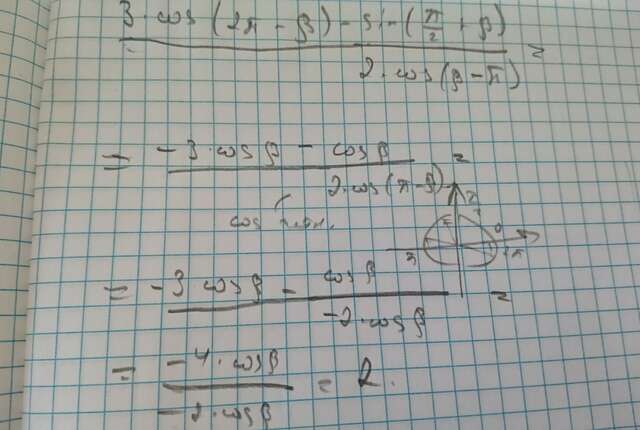 3·cos(2π - β) - sin(π/2 + β) / 2·cos(β-π) =
= -3·cosβ - cosβ / 2·cos(π-β) =
cos
π/2 0 π 2π
= -3 cosβ - cosβ / -2·cosβ =
= -4·cosβ / -2·cosβ = 2.